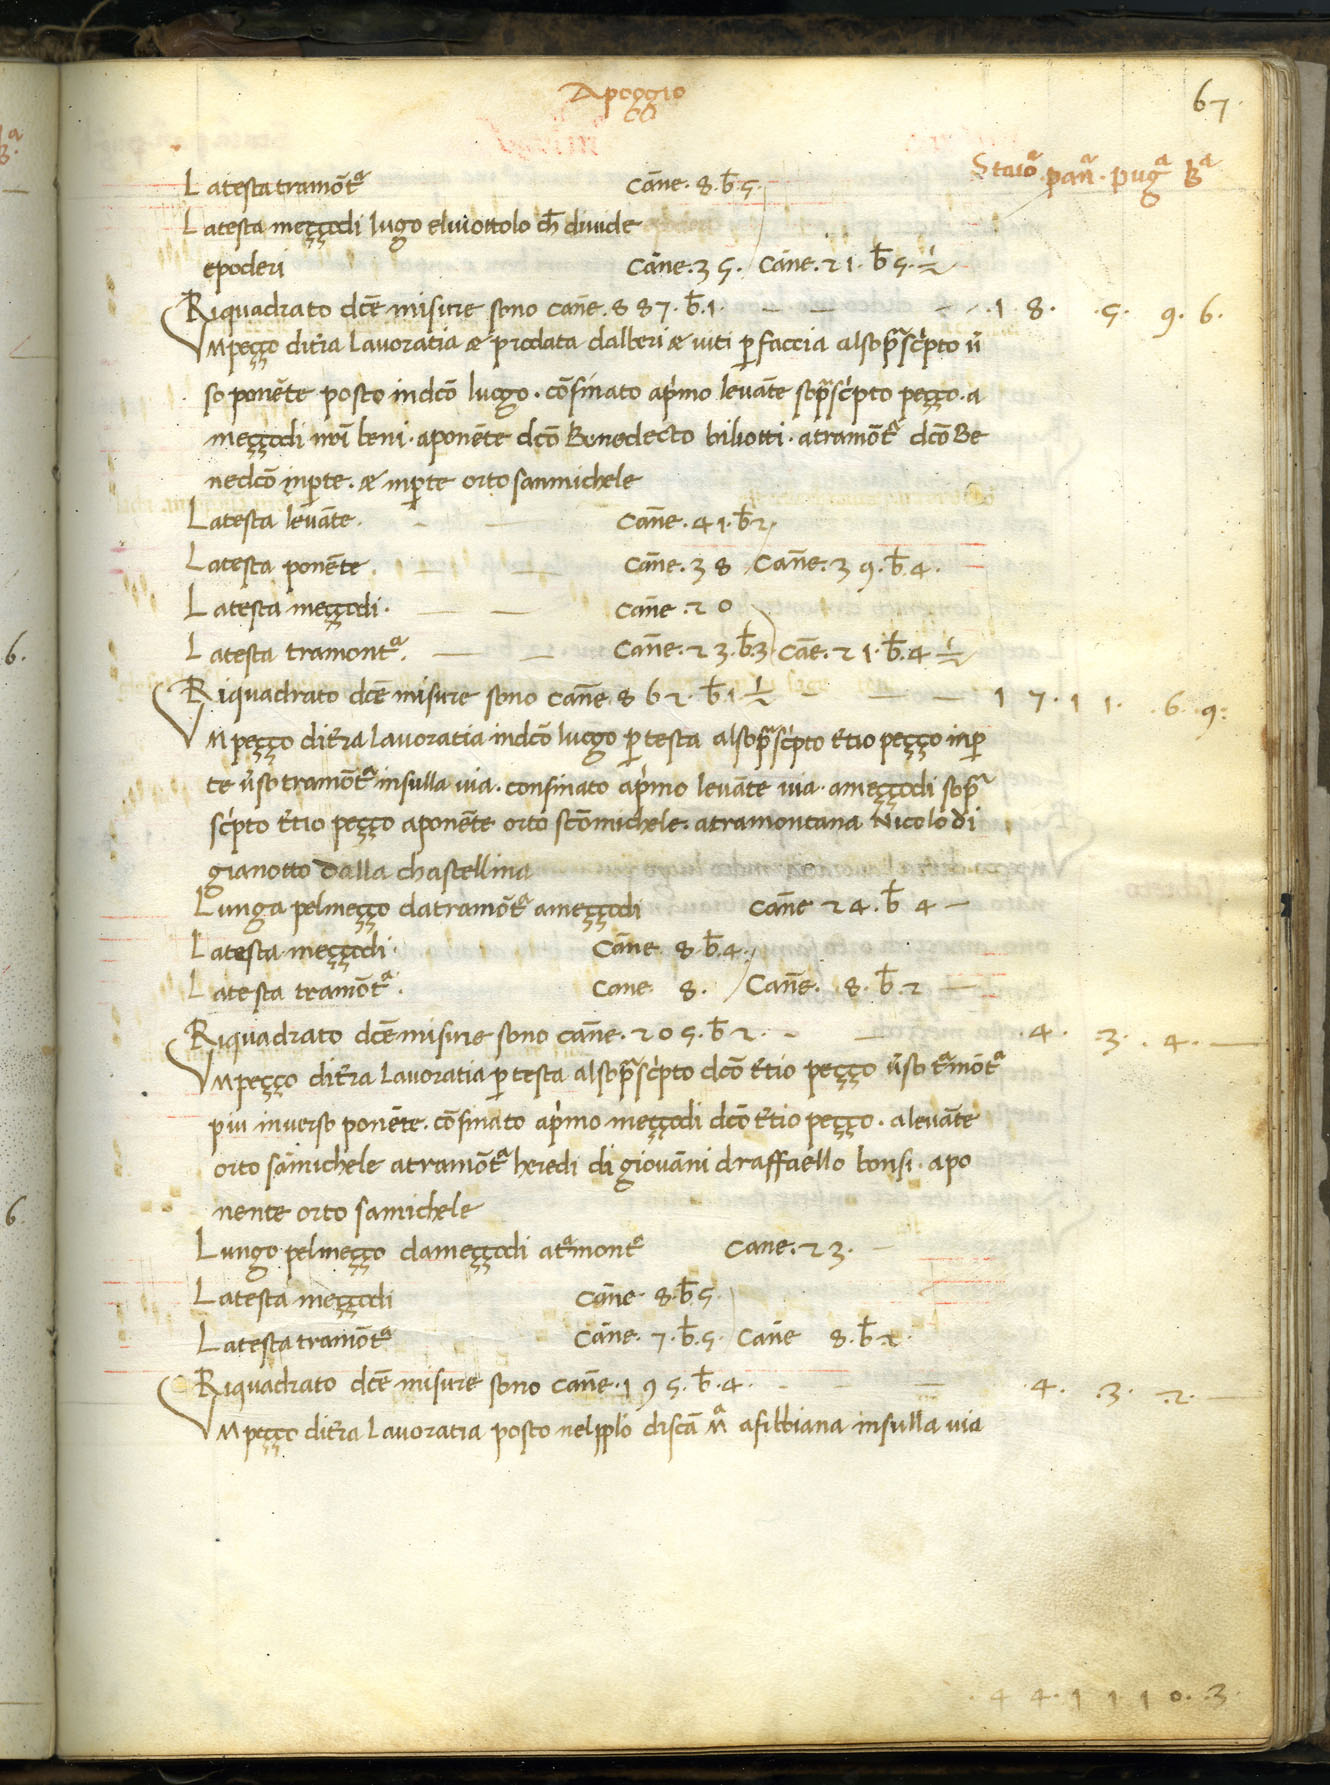 Apoggio
67
Staiōᵃ . pañᵃ . pugᵃ Bᵃ
Latesta tramōtᵃ Cāne . 8 . b̄ . 5 .
Latesta meççodi lugo eluiottolo ch̄ diuide
epoderi Cāne . 35 . Cāne . 21 . b̄ 5 . ½
Riquadrato dcē misure sono canē . 887 . b̄ . 1 . — — — . 18 . . 5 . 9 . 6 .
Vnpeçço ditr̄a Lauoratia æ prodata dalberi æ viti p̱ faccia alsopᵃscͥpto ū
so ponēte posto indcō luogo . cōfinato apͥmo leuāte sopᵃscͥpto peçço . a
meççodi nrī beni . aponēte dcō Benedecto biliotti . atramōtᵃ dcō Be
nedcō inp̱te . æ inp̱te orto sanmichele
Latesta leuāte . — — Canē . 41 . b̄ 2
Latesta ponēte . — — Cāne . 38 Cañe . 39 . b̄ . 4 .
Latesta meççodi . — — Cāne . 20
Latesta tramontᵃ . — — Cañe . 23 . b̄ . 3 . Cañe . 21 . b̄ . 4 ½
Riquadrato dcē misure sono cañe 862 . b̄ . 1 . ½ — — — 17 . 11 . . 6 . 9 :
Vnpeçço ditr̄a Lauoratia indcō luogo p̱ testa alsopᵃscͥpto t̄tio peçço inp̱
te ūso tramōtᵃ insulla uia . confinato apͥmo leuāte uia . ameççodi sopᵃ
scͥpto t̄tio peçço aponēte orto scōmichele . atramontana Nicolo di
gianotto dalla chastellina
Lunga pelmeçço datramōtᵃ ameççodi Cañe 24 . b̄ 4 —
Latesta meççodi . Cāne . 8 . b̄ . 4 .
Latesta tramōtᵃ . Cane . 8 . Cañe . 8 . b̄ . 2 —
Riquadrato dcē misure sono cāne . 205 . b̄ 2 . — — . 4 . . 3 . . 4 . —
Vnpeçço ditr̄a Lauoratia p̱ testa alsopᵃscͥpto dcō t̄tio peçço ūso tᵃmōtᵃ
piu inuerso ponēte . cōfinato apͥmo meççodi dcō t̄tio peçço . aleuāte
orto sāmichele atramōtᵃ heredi di giouāni draffaello bonsi . apo
nente orto samichele
Lungo pelmeçço dameççodi atᵃmontᵃ Cane . 23 . —
Latesta meççodi Cāne . 8 . b̄ 5 .
Latesta tramōtᵃ Cāne . 7 . b̄ . 5 . Cañe 8 . b̄ 2 .
Riquadrato dcē misure sono cañe . 195 . b̄ . 4 . — — . 4 . . 3 . . 2 . —
Vnpeçço ditr̄a Lauoratia posto nelpplō discā Mᵃ afibbiana insulla uia
. 44 . 11 10 . 3 .